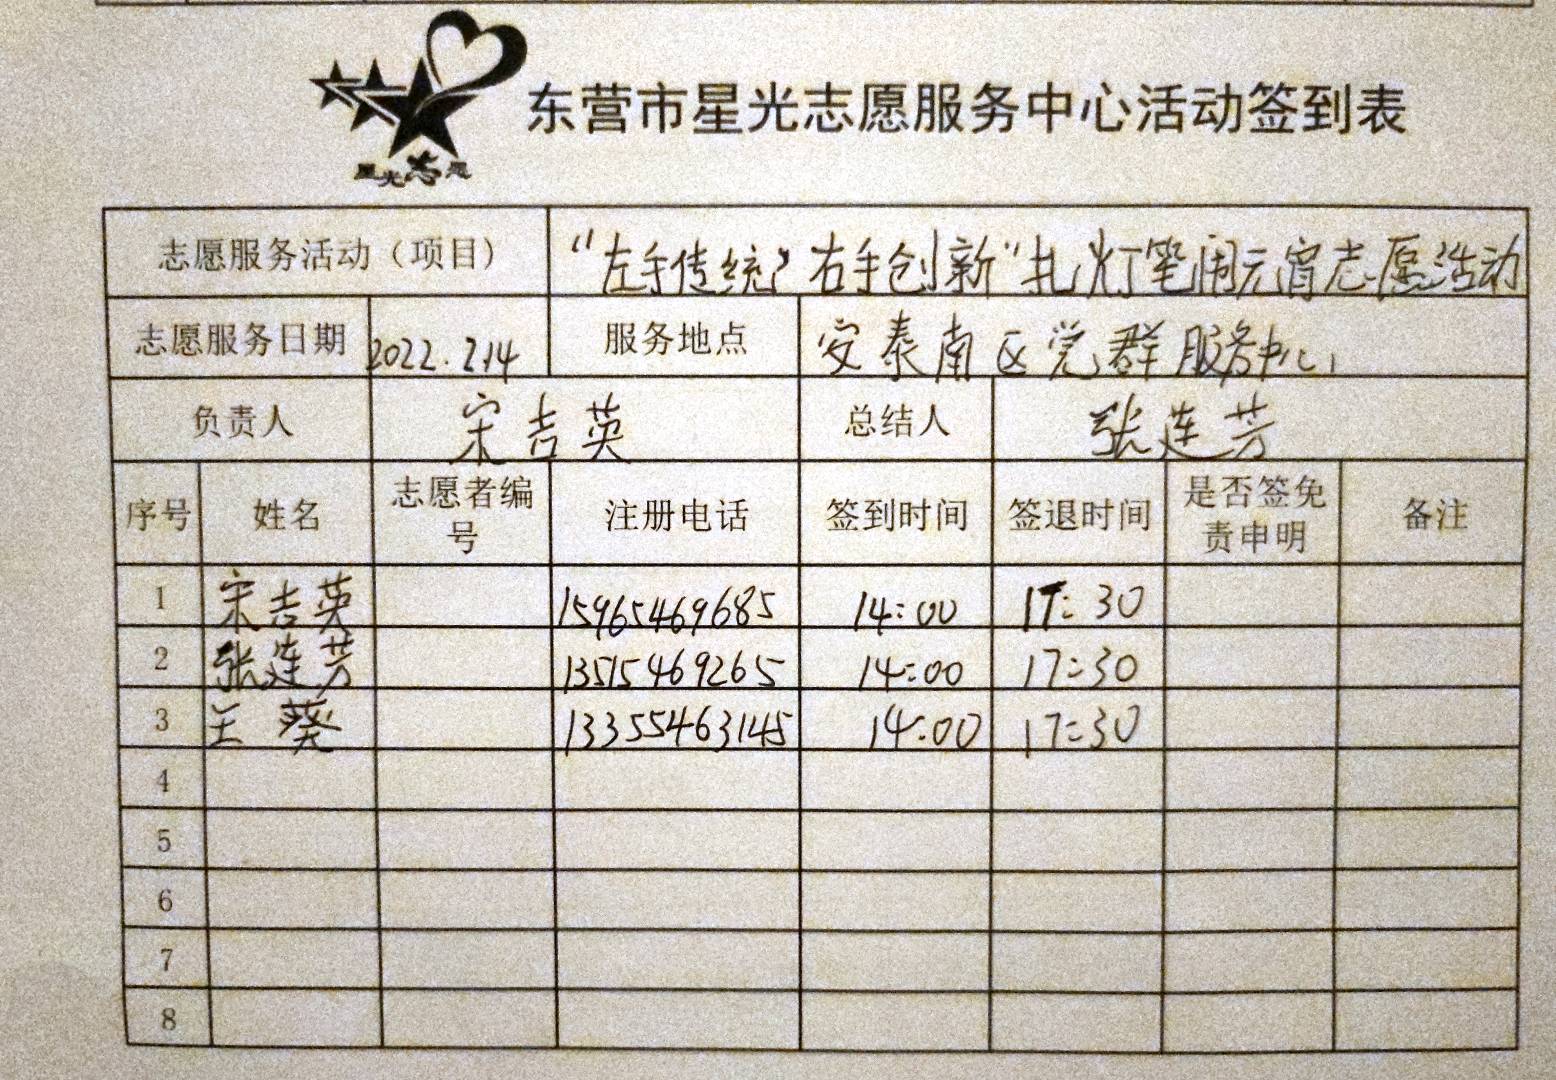 星光志愿
东营市星光志愿服务中心活动签到表
志愿服务活动（项目） “左手传统，右手创新”扎灯笔闹元宵志愿活动
志愿服务日期 2022.2.14 服务地点 安泰南区党群服务中心
负责人 宋吉英 总结人 张连芳
序号 姓名 志愿者编号 注册电话 签到时间 签退时间 是否签免责申明 备注
1 宋吉英 15965469685 14:00 17:30
2 张连芳 13515469265 14:00 17:30
3 王葵 13355463145 14:00 17:30
4
5
6
7
8